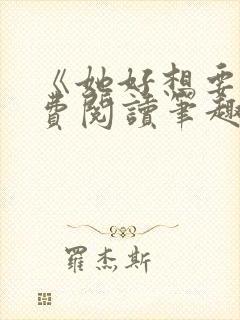 《她好想要
費閱讀筆趣
羅杰斯